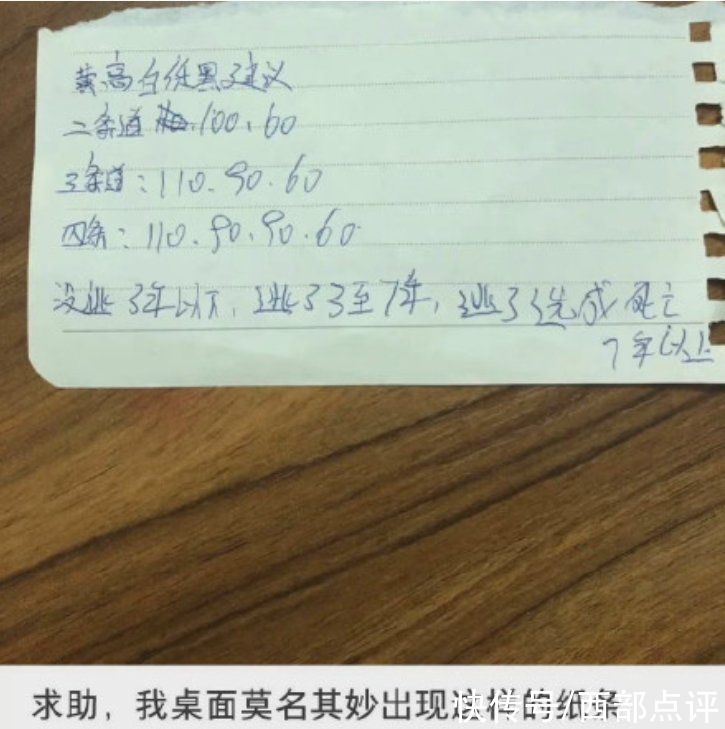 黄高白低黑了建议
二条道 100、60
3条道：110、90、60
四条：110、90、90、60
没逃3年以下，逃了3至7年，逃了造成死亡
7年以上
求助，我桌面莫名其妙出现这样的纸条
快传号/西部点评